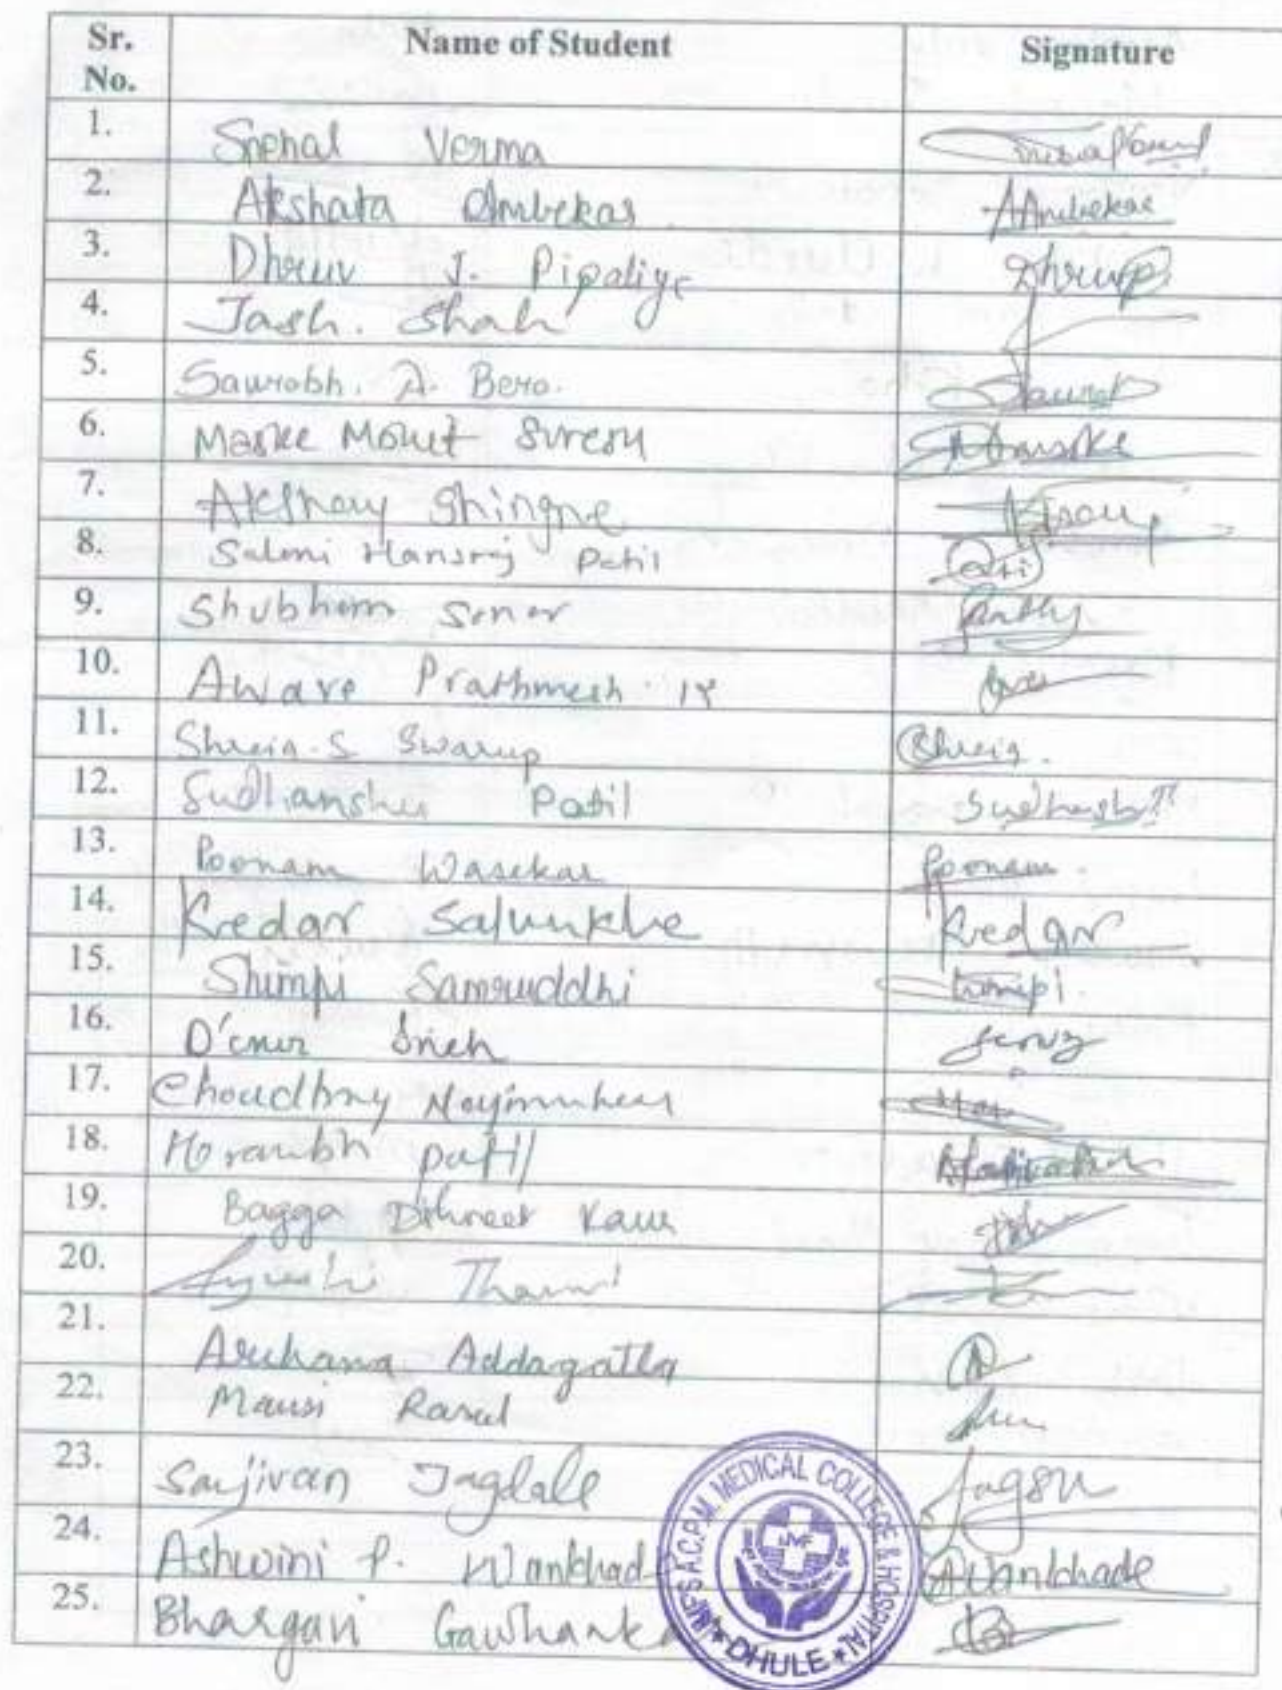 Sr. No. Name of Student Signature
1. Snehal Verma
2. Akshata Ambekar AAmbekar
3. Dhruv J. Pipaliya Dhruvp
4. Jash. Shah
5. Saurabh. A. Bera. Saurab
6. Maske Mohit Suresh
7. Akshay Shingne
8. Saloni Hansraj Patil
9. Shubham Sonar
10. Aware Prathmesh
11. Shreia. S Swarup Shreia.
12. Sudhanshu Patil
13. Poonam Wasekar Poonam.
14. Kedar Salunkhe Kedar
15. Shimpi Samruddhi Shimpi.
16. Sneh
17. Choudhary
18. patil
19. Bagga Kaur
20. Ayushi
21. Archana Addagatla
22. Mansi Raval
23. Sanjivan Jagdale
24. Ashwini P. Wankhad AWankhade
25. Bhargavi Gawhanka
JMF'S A.C.P.M. MEDICAL COLLEGE & HOSPITAL
JMF
DHULE